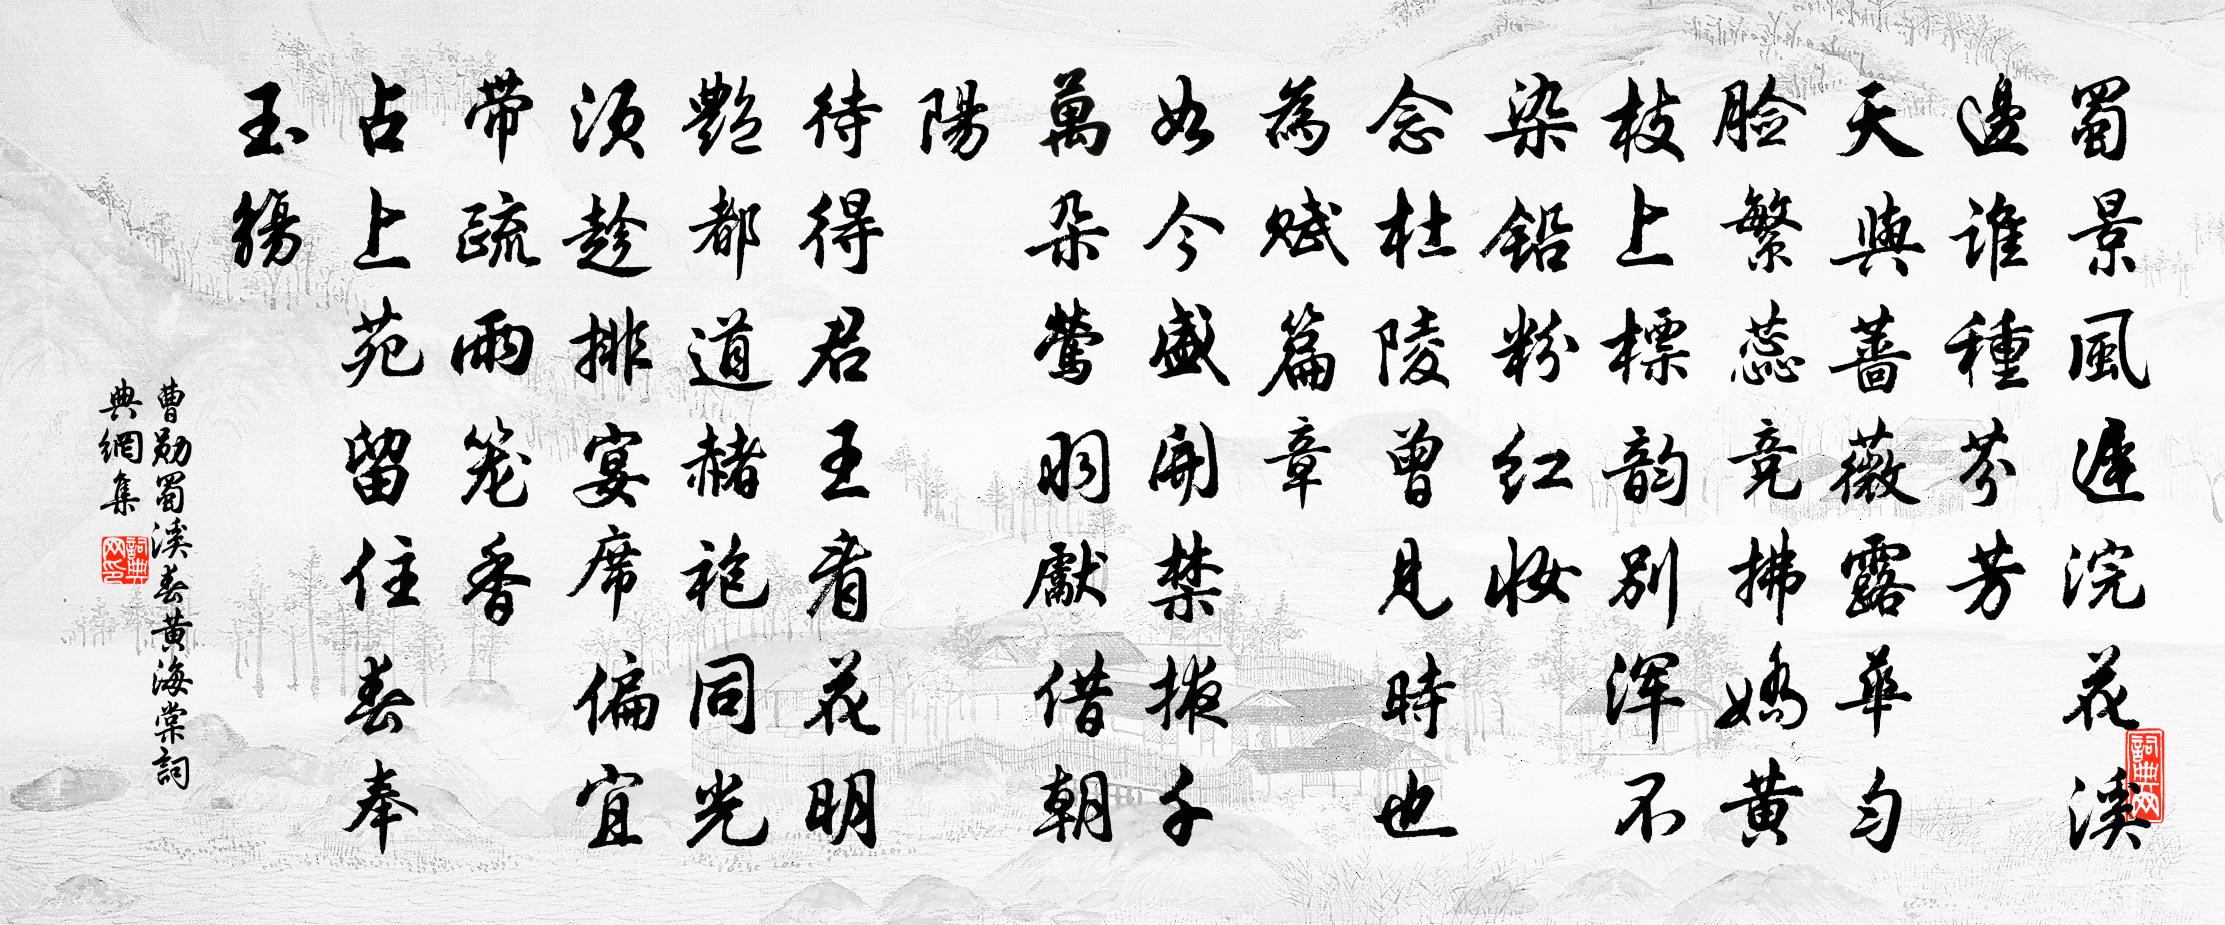 蜀景風遲浣花溪
邊誰種芬芳
天與薔薇露華勻
臉繁蕊竞拂嬌黃
枝上標韵别浑不
染鉛粉红妝
念杜陵曾見時也
為赋篇章
如今盛開禁掖千
萬朵鶯羽獻借朝
陽
待得君王看花明
艷都道赭袍同光
須趁排宴席偏宜
带疏雨笼香
占上苑留住春奉
玉觴
曹勛蜀溪春黄海棠詞
典網集
詞典网
詞典网印